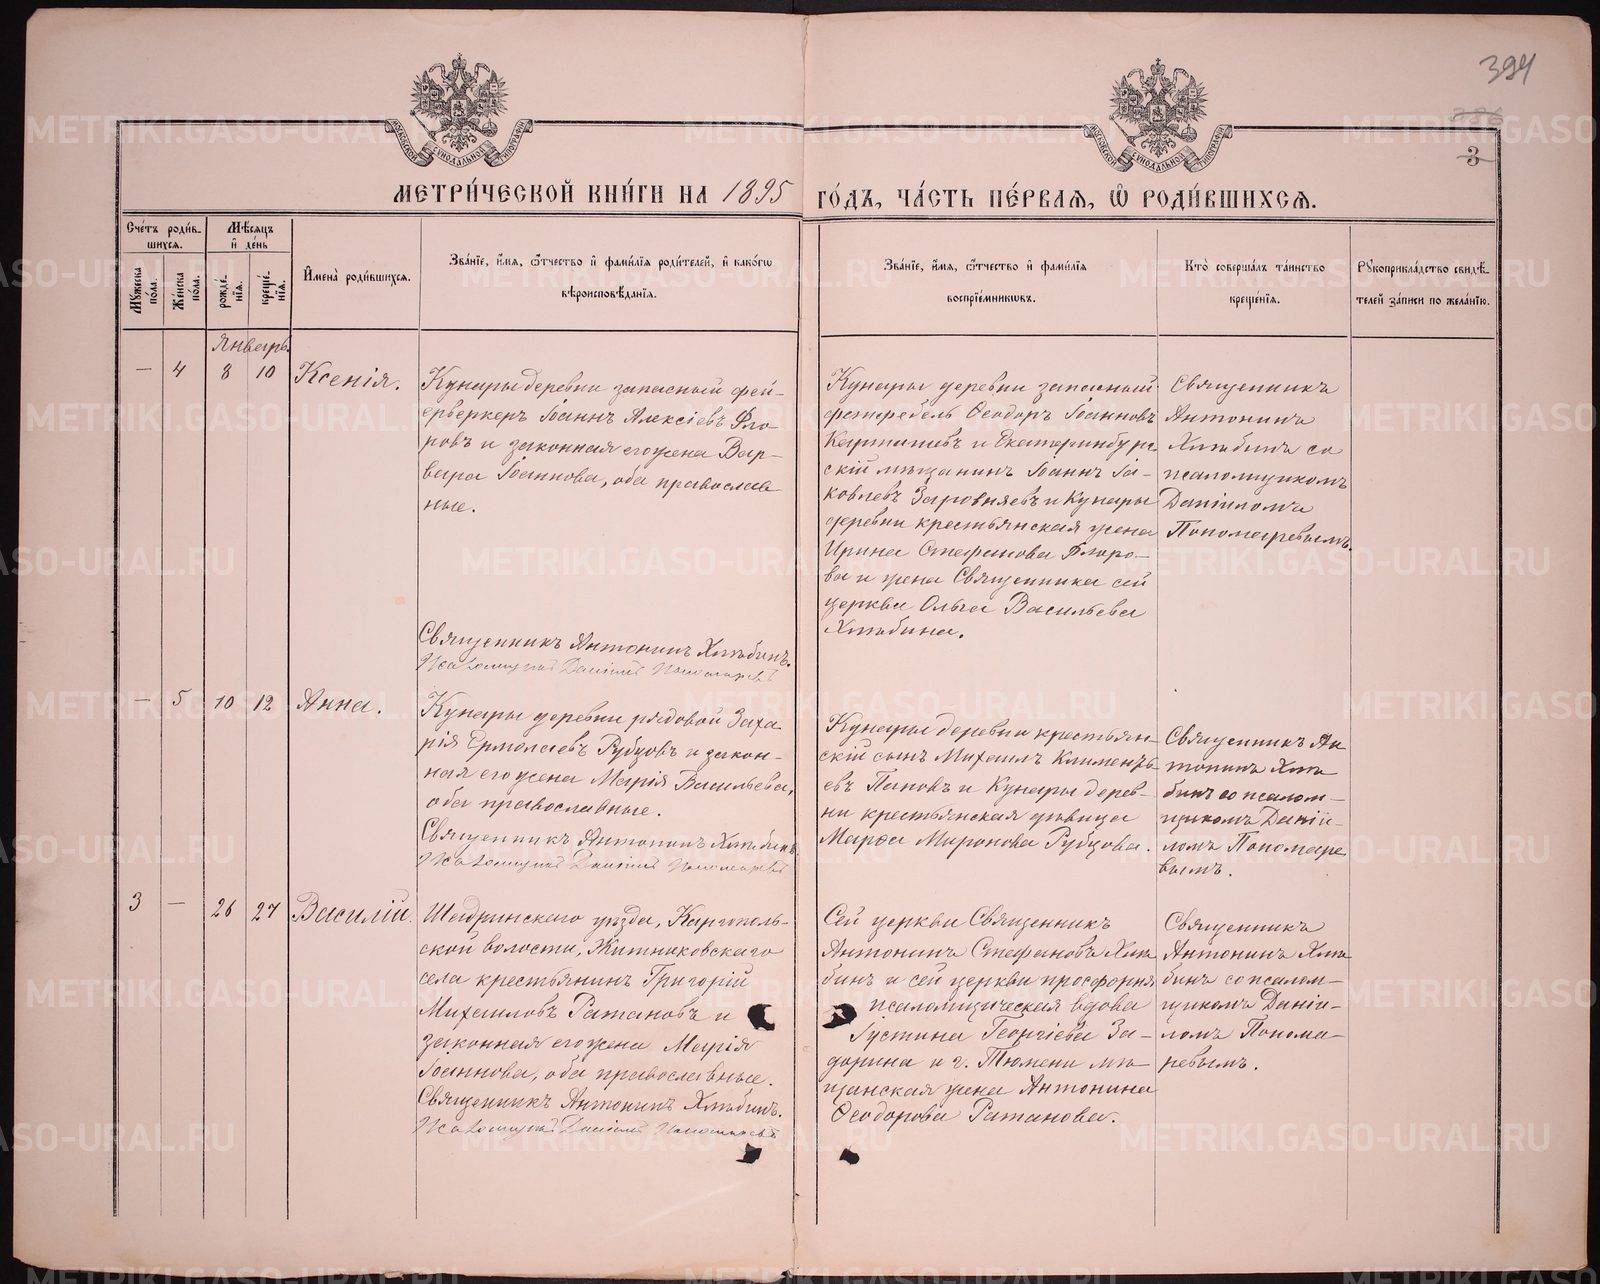 394
3
МОСКОВСКОЙ СѴНОДАЛЬНОЙ ТИПОГРАФІИ
МОСКОВСКОЙ СѴНОДАЛЬНОЙ ТИПОГРАФІИ
МЕТРИ́ЧЕСКОЙ КНИ́ГИ НА 1895 ГО́ДЪ, ЧА́СТЬ ПЕ́РВАЯ, Ѽ РОДИ́ВШИХСЯ.
Сче́тъ роди́в-
шихся.
Мѣсяцъ
и́ де́нь
Му́жеска
по́ла.
Же́нска
по́ла.
рожде́-
нія.
креще́-
нія.
И́мена̀ роди́вшихся.
Зва́ніе, и́мя, ѻ҆́тчество и́ фами́лія роди́телей, и́ како́гѡ
вѣроисповѣ́данія.
Зва́ніе, и́мя, ѻ҆́тчество и́ фами́лія
воспріе́мникѡвъ.
Кто̀ соверша́лъ та́инство
креще́нія.
Рꙋкоприкла́дство свидѣ́-
телей за́писи по жела́нію.
Январь.
— 4 8 10 Ксенія.
Кунары деревни запасный фей-
ерверкеръ Іоаннъ Алексіевъ Фло-
ровъ и законная его жена Вар-
вара Іоаннова, оба православ
ные.
Священникъ Антонинъ Хлѣбинъ.
Псаломщикъ Даніилъ Пономаревъ
Кунары деревни запасный
фельдфебель Ѳеодоръ Іоанновъ
Карташевъ и Екатеринбург
скій мѣщанинъ Іоаннъ Іа-
ковлевъ Заровняевъ и Кунары
деревни крестьянская жена
Ирина Стефанова Флоро-
ва и жена Священника сей
церкви Ольга Васильева
Хлѣбина.
Священникъ
Антонинъ
Хлѣбинъ со
псаломщикомъ
Даніиломъ
Пономаревымъ.
— 5 10 12 Анна.
Кунары деревни рядовой Заха
рія Ермолаевъ Рубцовъ и закон-
ная его жена Марія Васильева,
оба православные.
Священникъ Антонинъ Хлѣбинъ
Псаломщикъ Даніилъ Пономаревъ
Кунары деревни крестьян-
скій сынъ Михаилъ Климентъ-
евъ Пановъ и Кунары дерев-
ни крестьянская дѣвица
Марѳа Миронова Рубцова.
Священникъ Ан
тонинъ Хлѣ
бинъ со псалом-
щикомъ Даніи-
ломъ Пономаре
вымъ.
3 — 26 27 Василій.
Шадринскаго уѣзда, Каргополь-
ской волости, Житниковскаго
села крестьянинъ Григорій
Михаиловъ Ратановъ и
законная его жена Марія
Іоаннова, оба православные.
Священникъ Антонинъ Хлѣбинъ.
Псаломщикъ Даніилъ Пономаревъ
Сей церкви Священникъ
Антонинъ Стефановъ Хлѣ
бинъ и сей церкви просфорня
псаломщическая вдова
Іустина Георгіева За-
дорина и г. Тюмени мѣ-
щанская жена Антонина
Ѳеодорова Ратанова.
Священникъ
Антонинъ Хлѣ
бинъ со псалом-
щикомъ Даніи-
ломъ Понома-
ревымъ.
METRIKI.GASO-URAL.RU